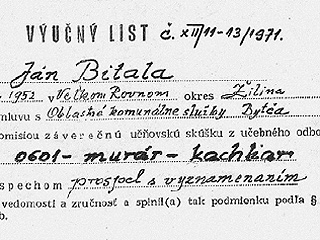 VÝUČNÝ LIST č. XIII/11-13/1971.
Ján Bitala
1952 v Veľkom Rovnom okres Žilina
mluvu s Oblastné komunálne služby Bytča
omisiou záverečnú učňovskú skúšku z učebného odbo
0601 - murár - kachliar
spechom prospel s vyznamenaním
vedomosti a zručnosť a splnil(a) tak podmienku podľa §
b.